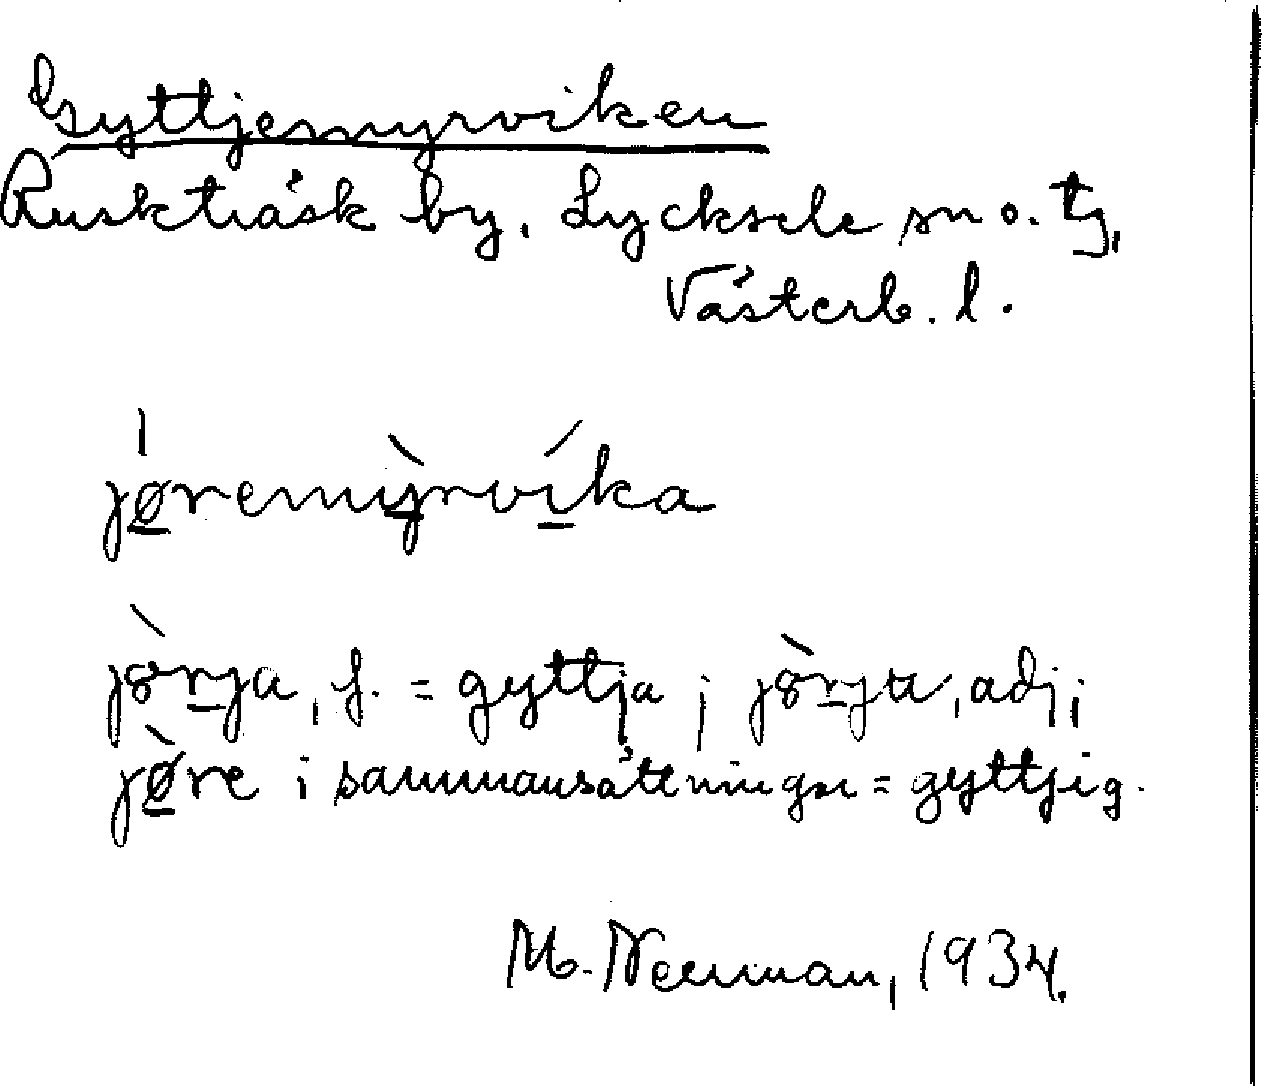 Gyttjemyrviken
Ruskträsk by. Lycksele sn o. tg,
Västerb. l.
jø̱remy̱rvi̱ka
jörja, f. = gyttja ; jörju, adj;
jø̱re i sammansättningar = gyttjig.
M. Neuman, 1934.